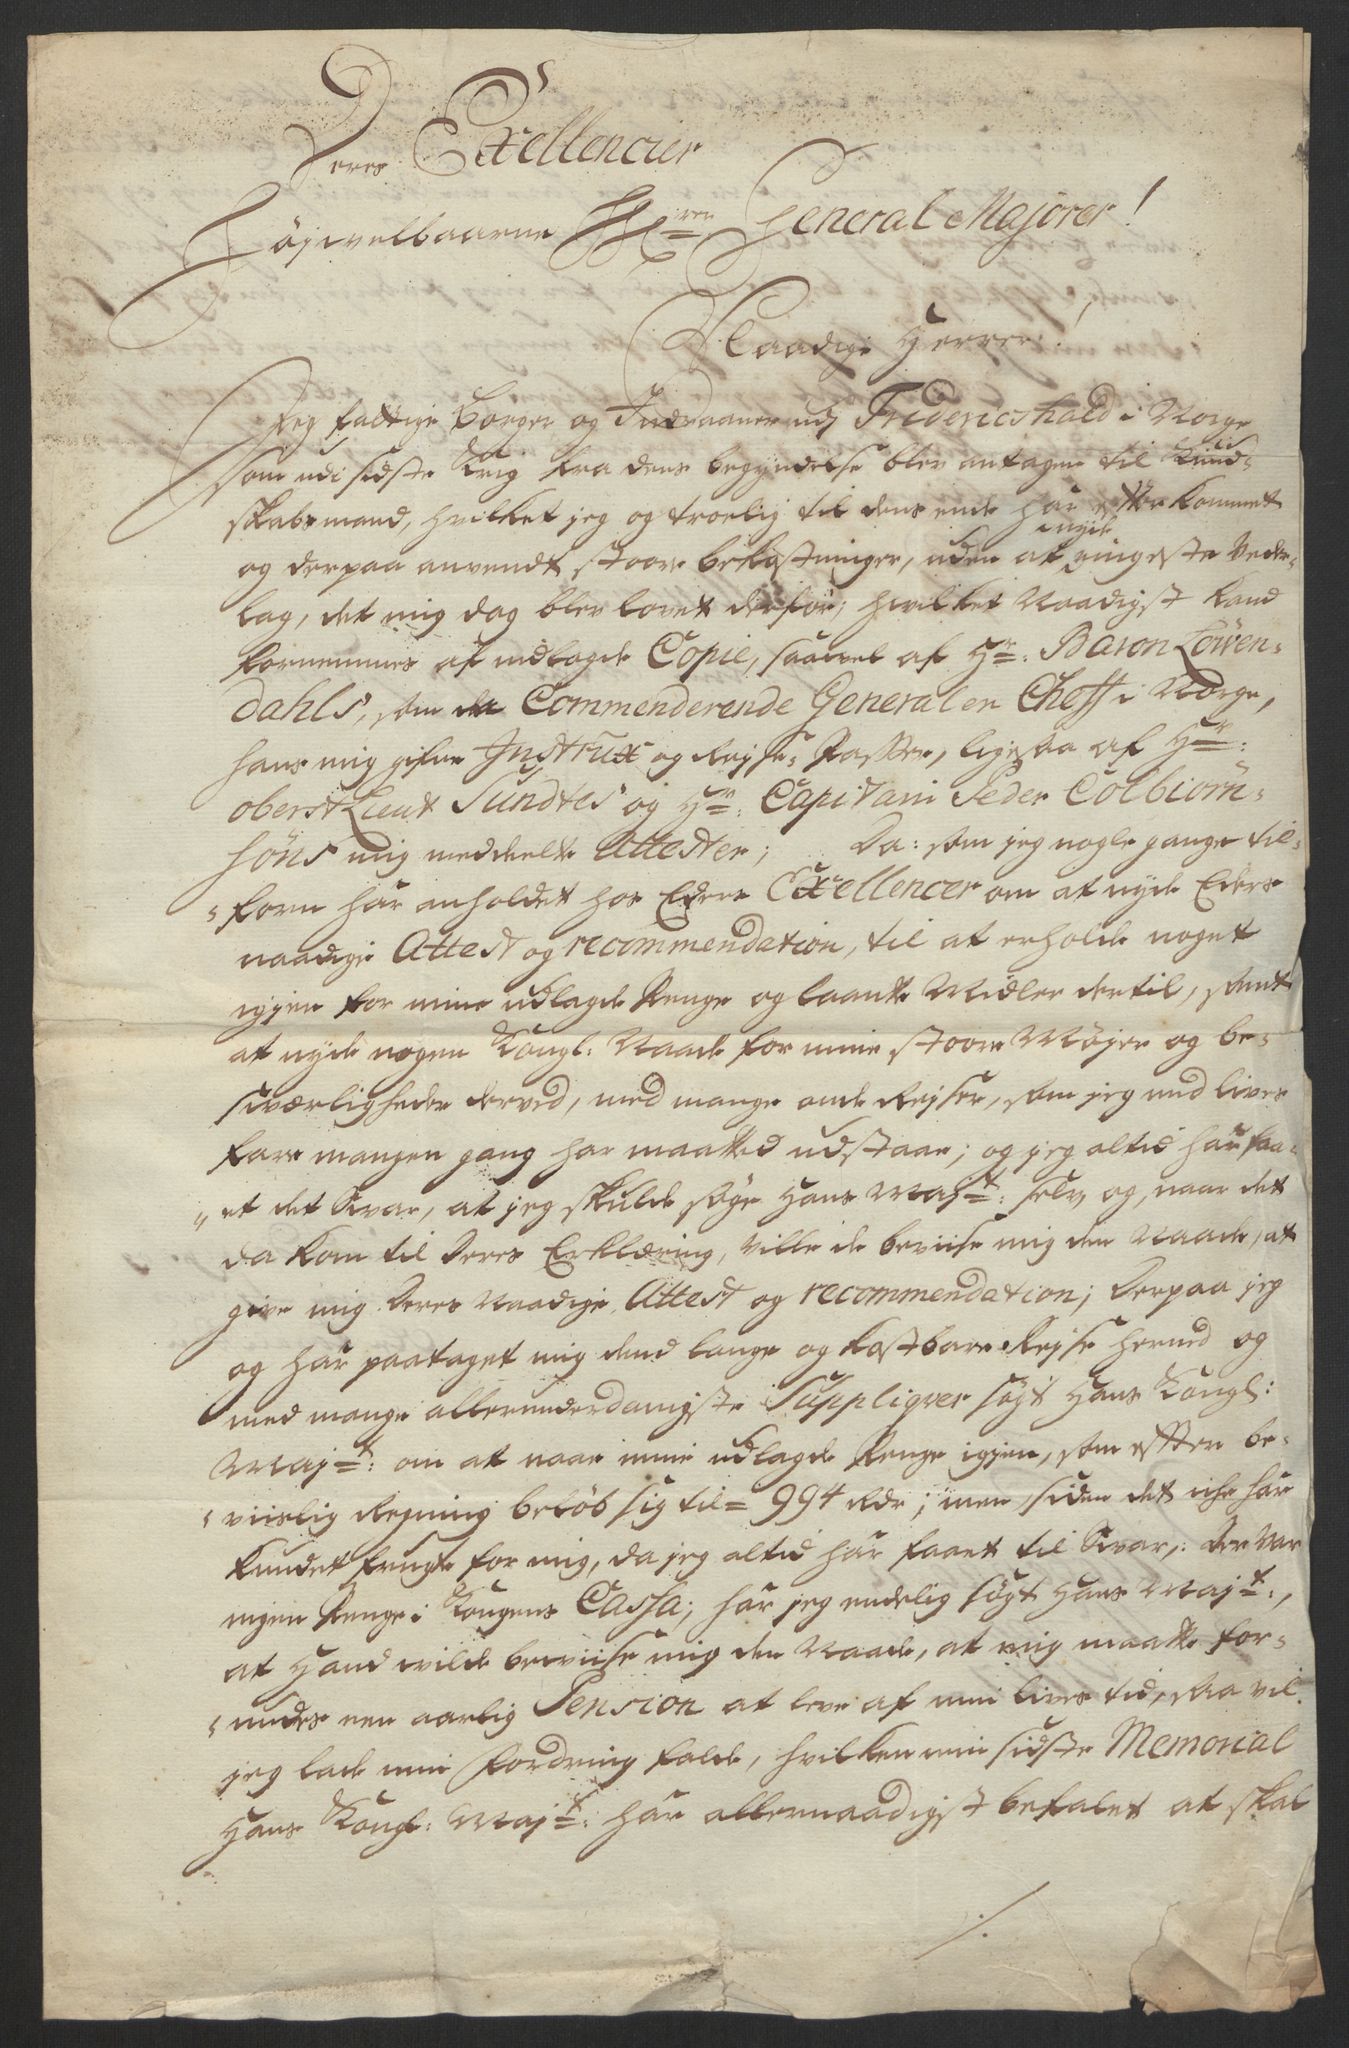 Deres Exellencier
Højvelbaarne HHrrer General Majorer!
Naadige Herrer!
Jeg fattige Borger og Indvaaner udj Fridericshald i Norge
som udi sidste Krig fra dens begyndelse blev antagen til Kund-
skabsmand, hvilket jeg og troelig til dens ende har efterkommet
og derpaa anvendt stoore bekostninger, uden at nyde ringeste Veder-
lag, det mig dog blev lovet derfor, hvilket Naadigst kand
fornemmes af indlagde Copie, saavel af Hr: Baron Löwen-
dahls, som da Commenderende General en Cheff i Norge,
hans mig gifne Instrux og Rejse-Passer, ligesaa af Hr:
oberst Lieut Sundtes og Hr: Capitain Peder Colbiørn-
søns mig meddeelte Attester; Da: som jeg nogle gange til-
-forn har anholdet hos Edere Exellencer om at nyde Eders
naadige Attest og recommendation, til at erholde noget
igjen for mine udlagde Penge og laante Midler dertil, samt
at nyde nogen Kongl: Naade for mine stoore Møjer og be-
sværligheder derved, med mange onde Rejser, som jeg med lives
fare mangen gang har maatted udstaae; og jeg altid har faa-
et det Svar, at jeg skulde søge Hans Majt: selv og, naar det
da kom til Deres Erklæring, ville de beviise mig den Naade, at
give mig Deres Naadige Attest og recommendation; Derpaa jeg
og har paataget mig dend lange og kostbare Rejse herned og
med mange allerunderdanigste Suppliqver søgt Hans Kongl:
Majt: om at naae mine udlagde Penge igjen, som efter be-
-viislig Regning beløb sig til= 994 Rdr; men, siden det iche har
kundet frugte for mig, da jeg altid har faaet til Svar,: Der var
ingen Penge i Kongens Cassa; har jeg endelig søgt Hans Majt:,
at Hand vilde beviise mig den Naade, at mig maatte for-
-undes een aarlig Pension at leve af min lives tid, saa vil
jeg lade min fordring falde, hvilken min sidste Memorial
Hans Kongl: Majt: har allernaadigst befalet at skal
./.